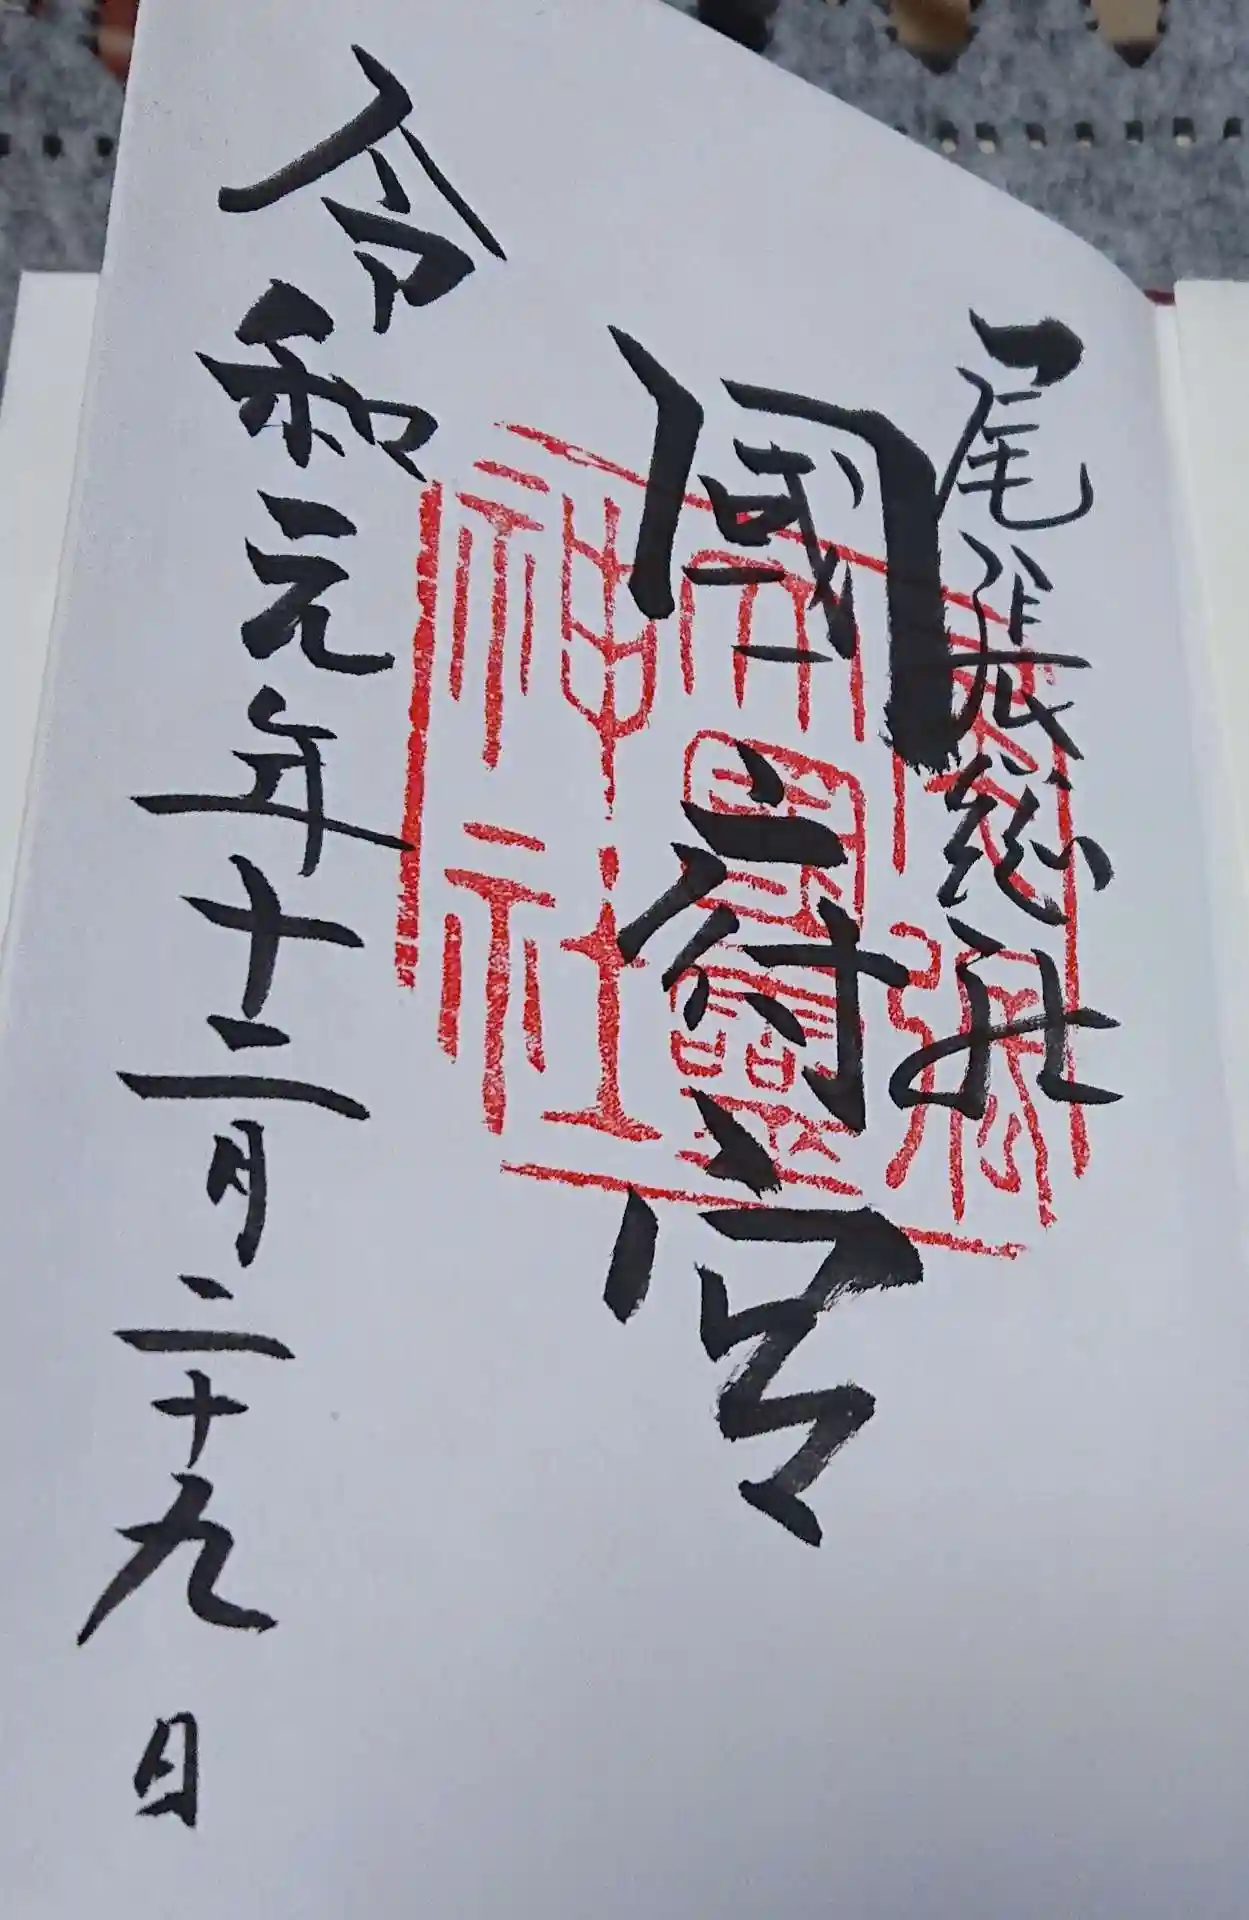 尾張総社
國府宮
令和元年十二月二十九日
尾張
大國靈
神社